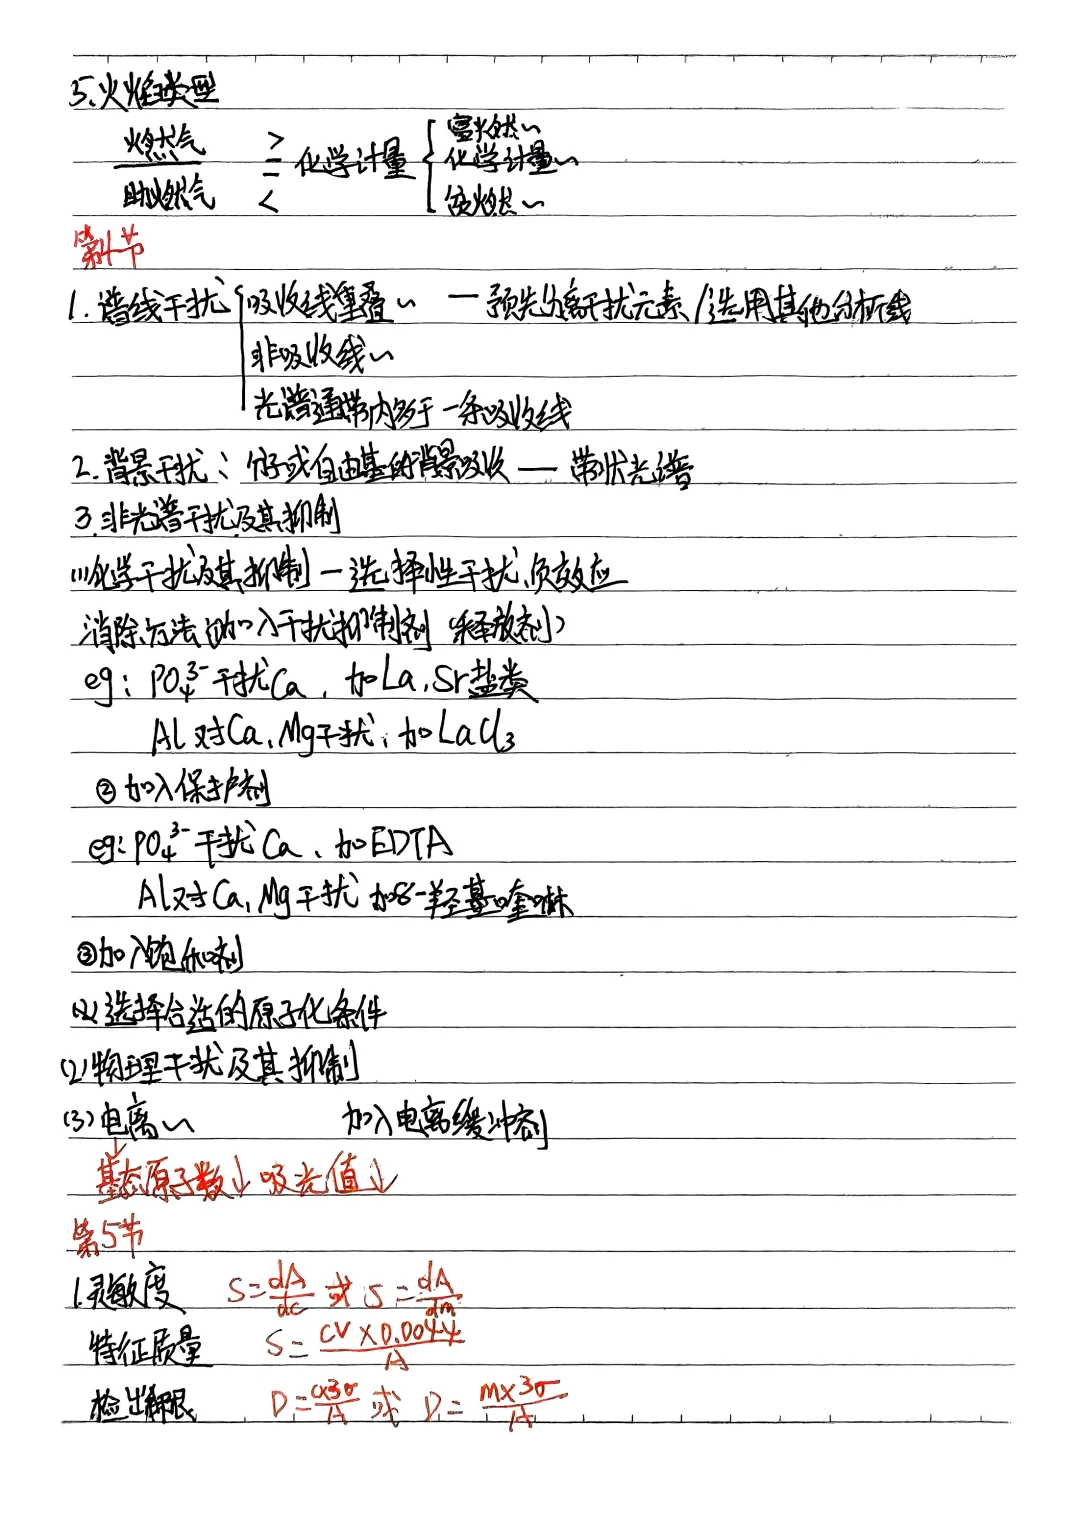 5.火焰类型
燃气/助燃气 > = < 化学计量 { 富燃~
化学计量~
贫燃~
第4节
1.谱线干扰 { 吸收线重叠~ — 预先分离干扰元素/选用其他分析线
非吸收线~
光谱通带内多于一条吸收线
2.背景干扰:分子或自由基的背景吸收 — 带状光谱
3.非光谱干扰及其抑制
(1)化学干扰及其抑制 — 选择性干扰、负效应
消除方法 ①加入干扰抑制剂(释放剂)
eg: PO₄³⁻干扰Ca,加La,Sr盐类
Al对Ca,Mg干扰,加LaCl₃
②加入保护剂
eg: PO₄³⁻干扰Ca、加EDTA
Al对Ca,Mg干扰 加8-羟基喹啉
③加入饱和剂
(2)选择合适的原子化条件
(2)物理干扰及其抑制
(3)电离~ 加入电离缓冲剂
↓
基态原子数↓吸光值↓
第5节
1.灵敏度 S=dA/dc 或 S=dA/dm
特征质量 S=CV×0.0044/A
检出限 D=c×3σ/A 或 D=m×3σ/A